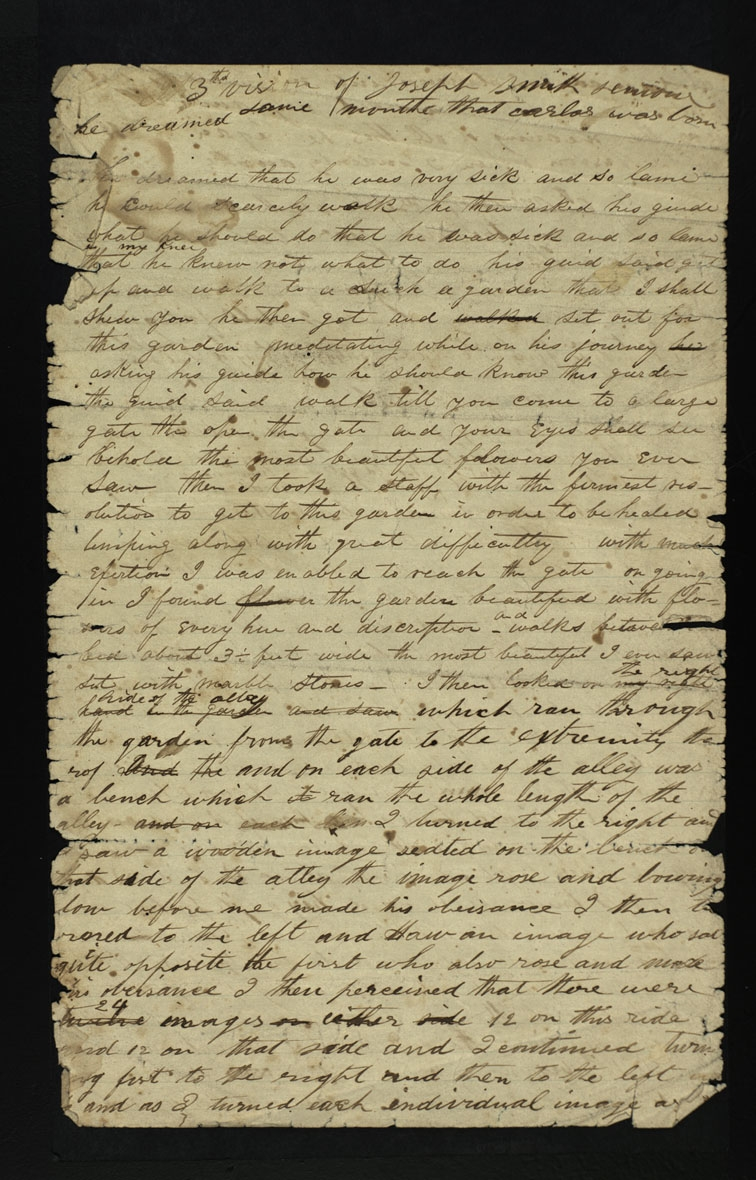 3rd vision of Joseph Smith senior
he dreamed same months that carlos was born
he dreamed that he was very sick and so lame
he could scarcely walk he then asked his guide
what he should do that he was sick and so lame
in my knee
that he knew not what to do his guid said get
up and walk to a such a garden that I shall
shew you he then got and walked set out for
this garden meditating while on his journey
asking his guide how he should know this garden
the guid said walk till you come to a large
gate the open the gate and your Eyes shall see
behold the most beautiful folowers you Ever
saw then I took a staff with the firmest res-
olution to get to this garden in order to be healed
limping along with great difficulltey with much
exertion I was enabled to reach the gate on going
in I found flower the garden beautified with flo-
wers of Every hue and discription and walks between
bed about 3½ feet wide the most beautiful I ever saw
set with marble stones - I then looked on my right the right
hand in the garden side of the alley and saw which ran through
the garden from the gate to the extremity the
rof And the and on each side of the alley was
a bench which it ran the whole length of the
alley and on each I turned to the right and
saw a wooden image seated on the bench on
that side of the alley the image rose and bowing
low before me made his obeisance I then tu
rned to the left and saw an image who sat
quite opposite the first who also rose and made
his obeisance I then perceived that there were
twelve 24 images on either side 12 on this side
and 12 on that side and I continued turn
ing first to the right and then to the left
and as I turned each individual image